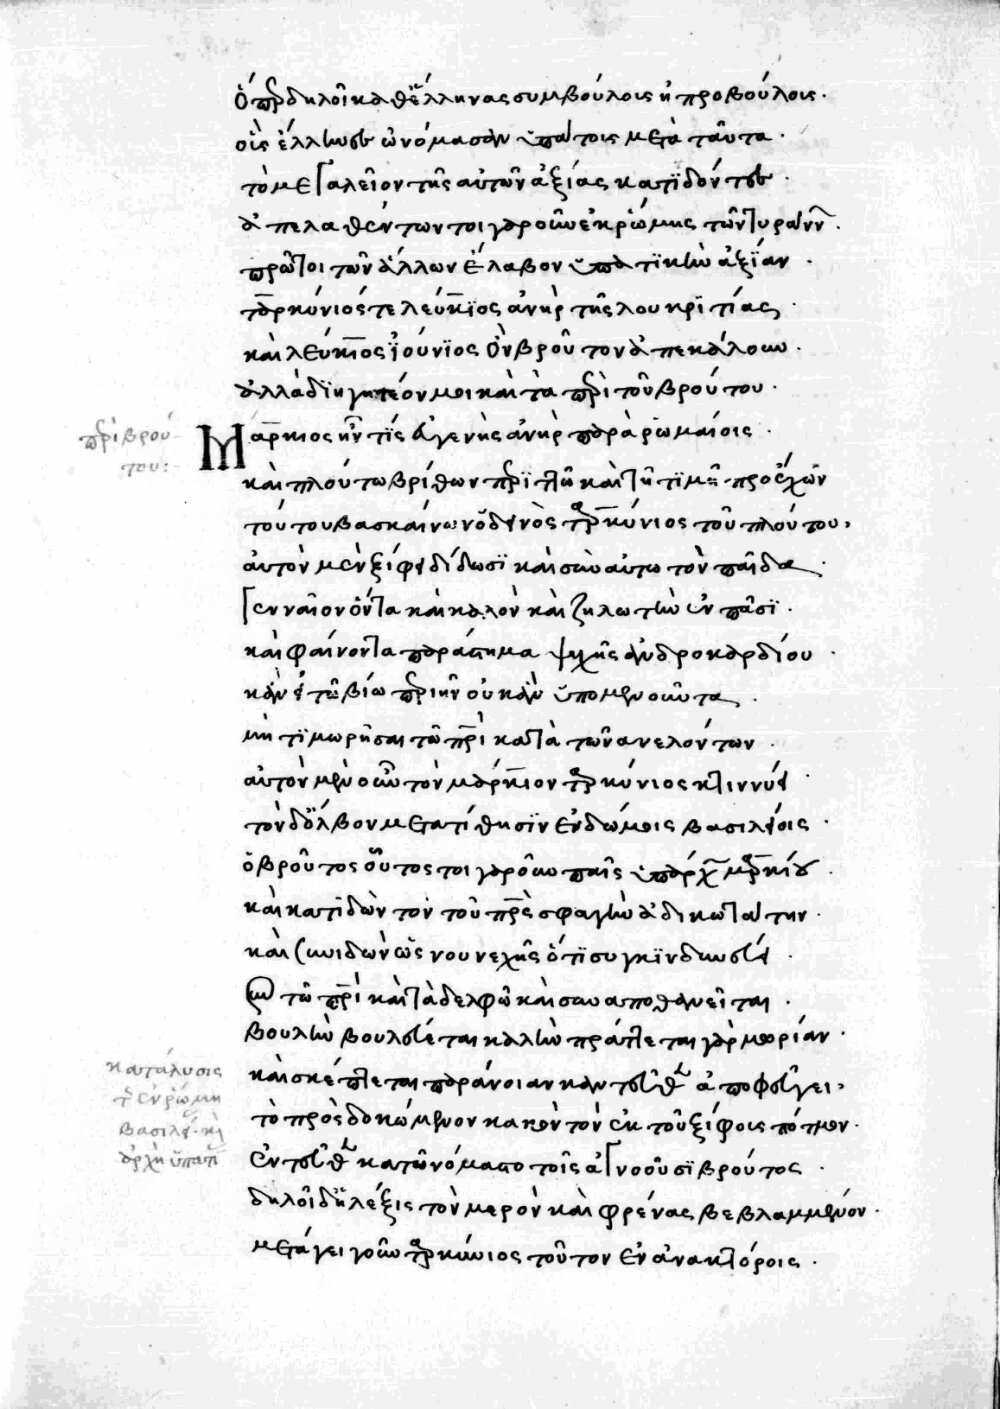 ὅπερ δηλοῖ καθ' ἕλληνας συμβούλοις ἢ προβούλοις·
οὓς ἕλληνες ὠνόμασαν ὑπάτοις μετὰ ταῦτα·
τὸ μεγαλεῖον τῆς αὐτῶν ἀξίας κατιδόντες·
ἀπελαθέντων τοιγαροῦν ἐκ ῥώμης τῶν τυράννων·
πρῶτοι τῶν ἄλλων ἔλαβον ὑπατικὴν ἀξίαν·
ταρκύνιός τε λεύκιος ἀνὴρ τῆς λουκριτίας·
καὶ λεύκιος ἰούνιος ὃν βροῦτον ἀπεκάλουν·
ἀλλὰ διηγητέον μοι καὶ τὰ περὶ τοῦ βρούτου·
περὶ βρού
του:
Μάρκιος ἦν τίς εὐγενὴς ἀνὴρ παρὰ ῥωμαίοις·
καὶ πλούτω βρίθων περιττῶ καὶ τῆ τιμῆ προέχων
τούτου βασκαίνων ὄλβου ταρκύνιος τοῦ πλούτου,
αὐτὸν μὲν ξίφει δίδωσι καὶ σὺν αὐτῶ τὸν παῖδα·
γενναῖον ὄντα καὶ καλὸν καὶ ζηλωτὴν ἐν πᾶσι·
καὶ φαίνοντα παράστημα ψυχῆς ἀνδροκαρδίου·
κἂν εἰ τῶ βίω περιῆν οὐκ ἂν ὑπομενοῦντα·
μὴ τιμωρῆσαι τῶ πατρὶ κατὰ τῶν ἀνελόντων·
αὐτὸν μὲν οὖν τὸν μάρκιον ταρκύνιος κτιννύει·
τὸν δ' ὄλβον μετατίθησιν ἐν δώμασι βασιλείοις·
ὁ βροῦτος οὗτος τοιγαροῦν παῖς ὑπάρχων μαρκίου·
καὶ κατιδὼν τὸν τοῦ πατρὸς σφαγὴν ἀδικωτάτην·
καὶ συνιδὼν ὡς νουνεχὴς ὅτι συγκινδυνεύει·
σὺν τῶ πατρὶ καὶ τἀδελφῶ καὶ συναποθανεῖται·
βουλὴν βουλεύεται καλὴν πράττεται γὰρ μωρίαν·
κατάλυσις
τῆς ἐν ῥώμη
βασιλείας καὶ
ἀρχὴ ὑπάτων
καὶ σκέπτεται παράνοιαν κἀντεῦθεν ἀποφεύγει,
τὸ προσδοκώμενον κακὸν τὸν ἐκ τοῦ ξίφους πότμον·
ἐντεῦθεν κατωνόμαστο τοῖς ἀγνοοῦσι βροῦτος·
δηλοῖ δ' ἡ λέξις τὸν μωρὸν καὶ φρένας βεβλαμμένον·
μετάγει γοῦν ταρκύνιος τοῦτον ἐν ἀνακτόροις·